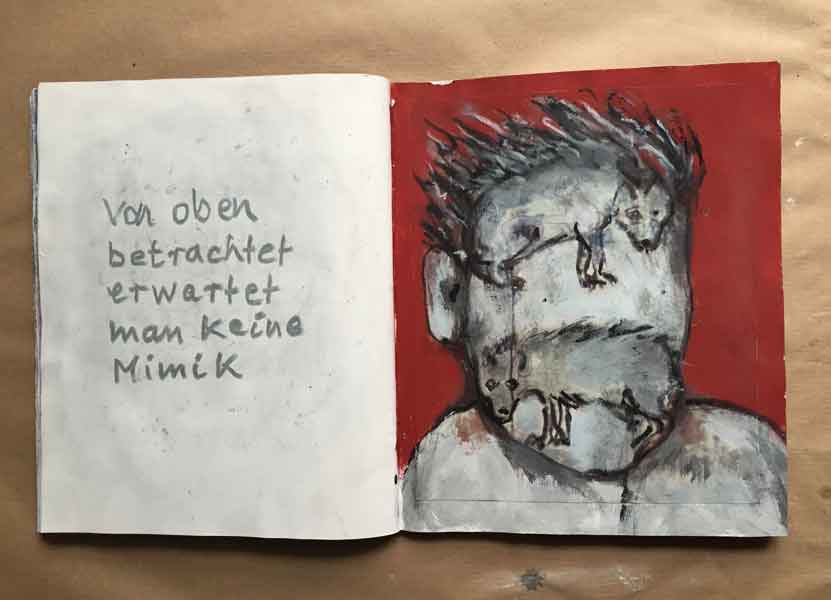 Von oben
betrachtet
erwartet
man keine
Mimik